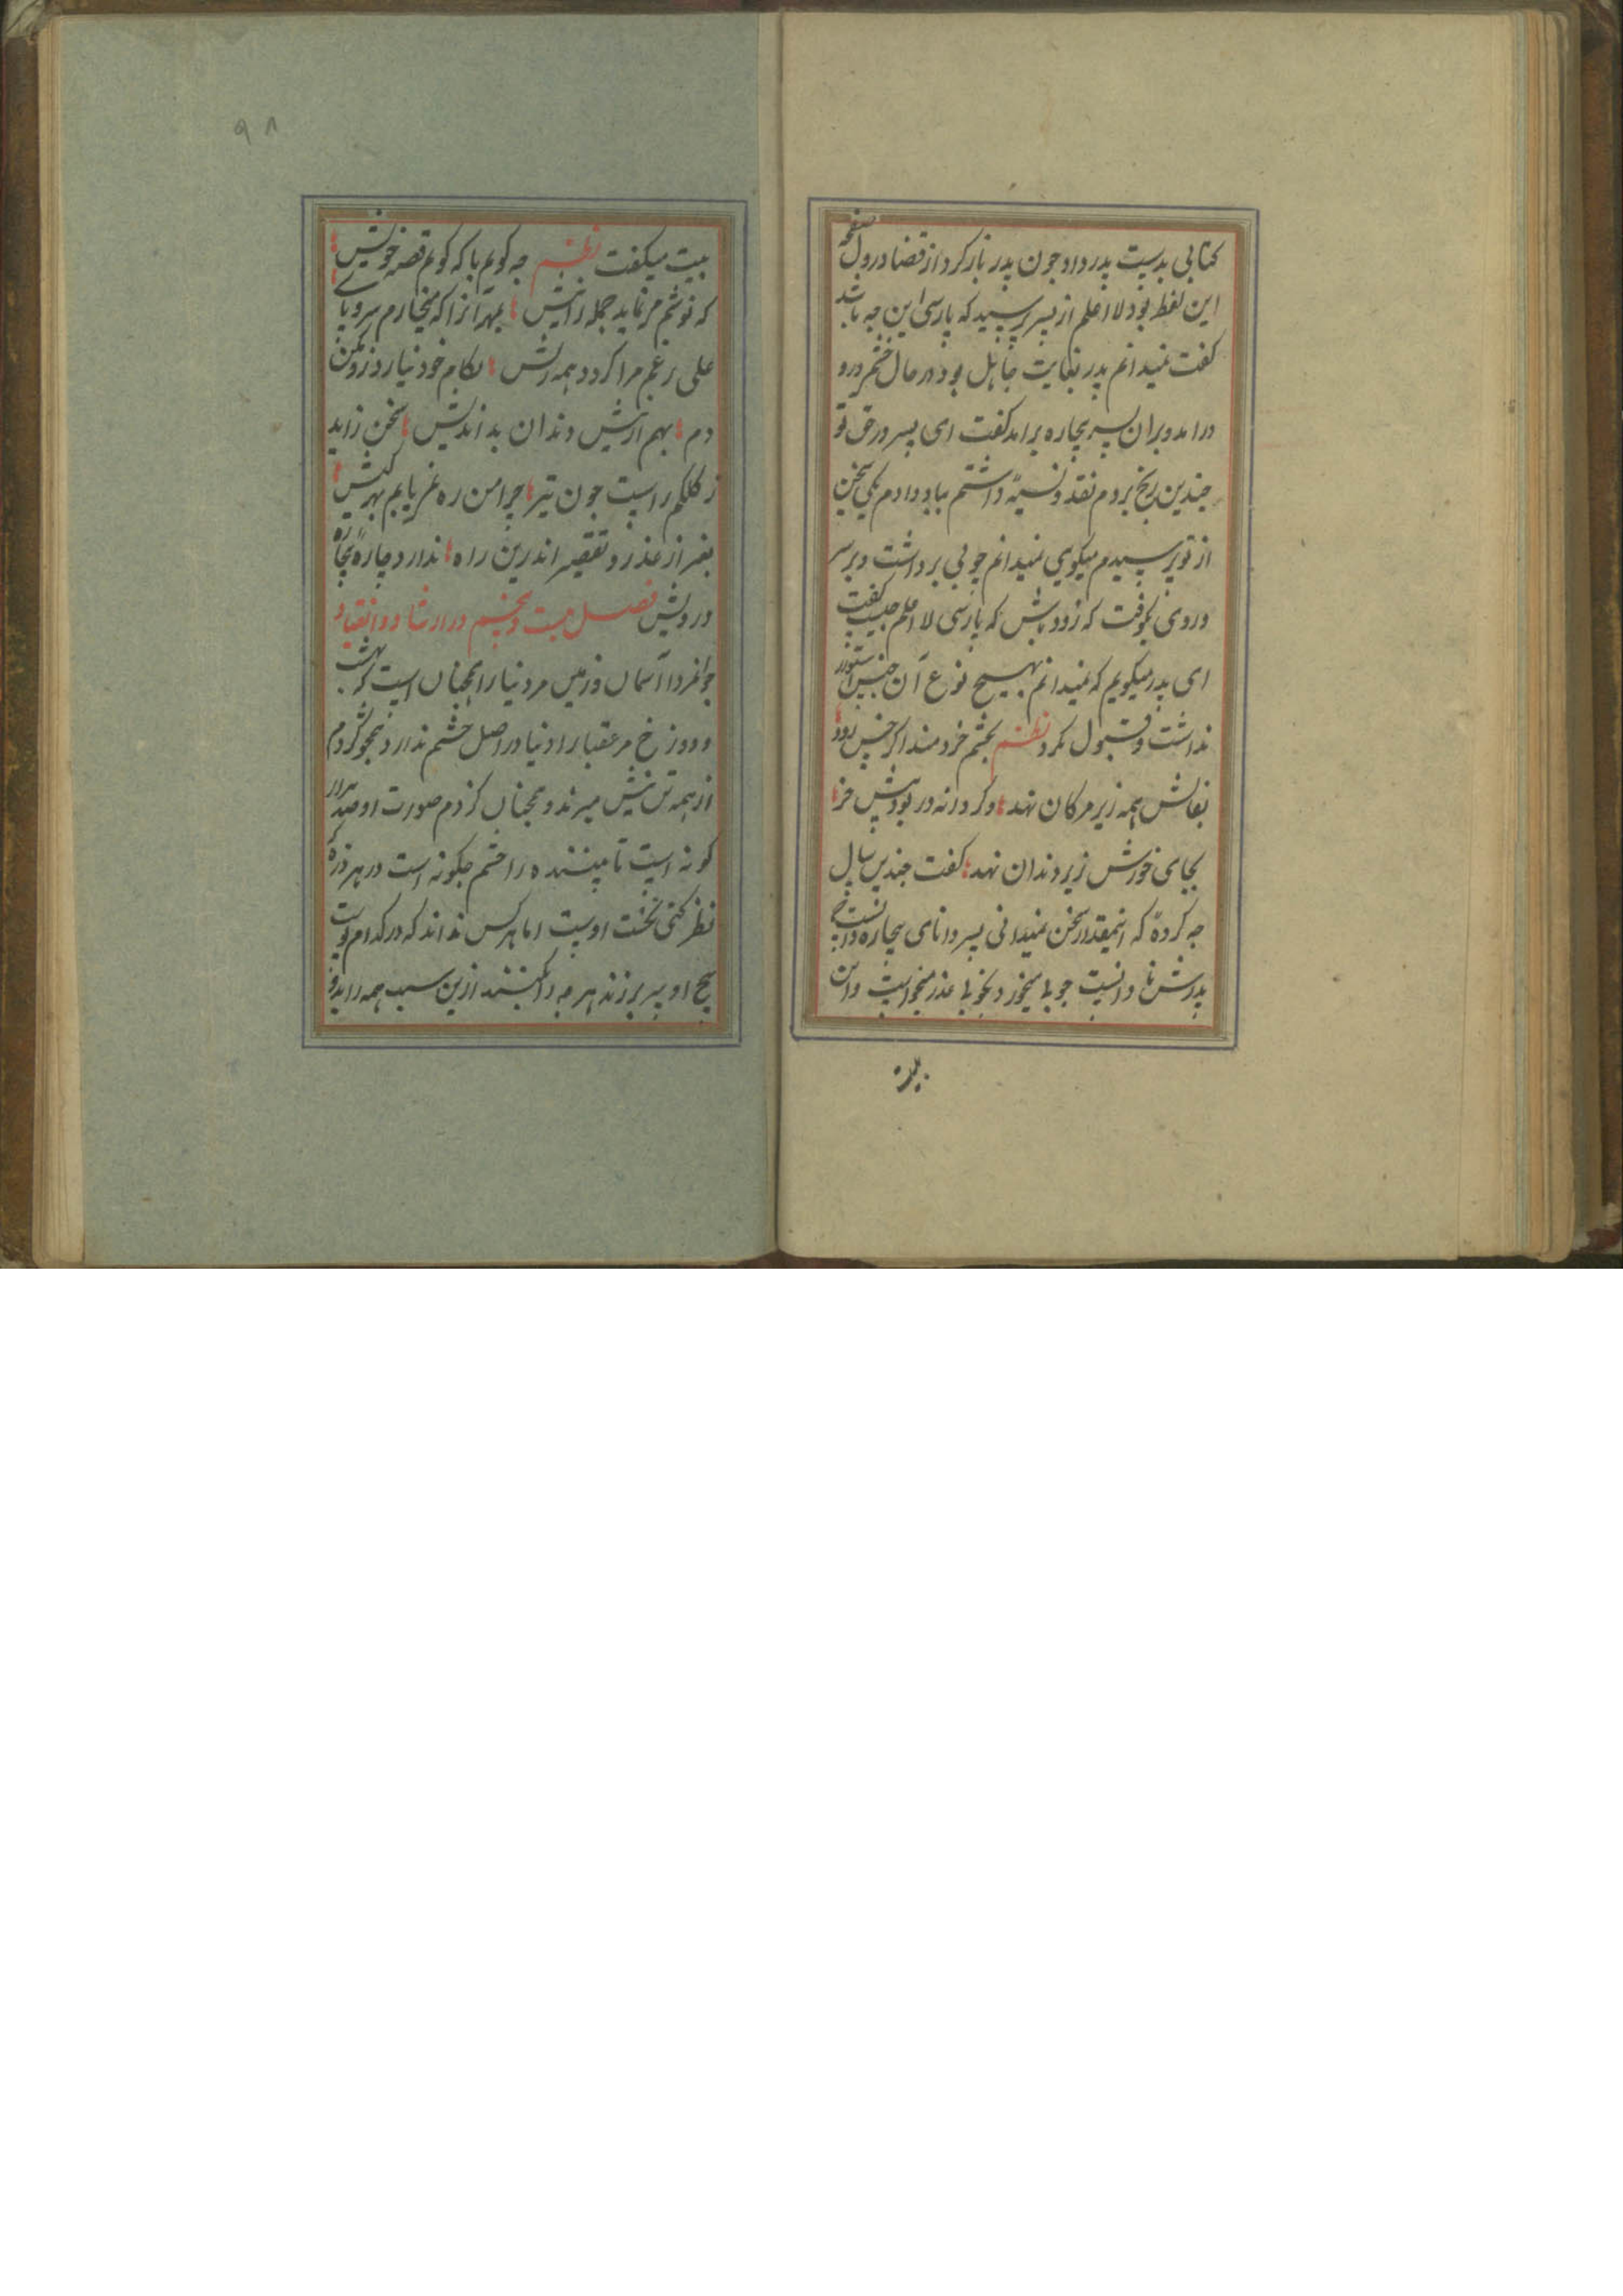 کتابی بدست پدر داد جون پدر باز کرد از قضا در اول صفحه
این لفظ بود لا اعلم از پسر پرسید که پارسی این چه باشد
گفت نمیدانم پدر بغایت جاهل بود در حال خشم درو
درامد و بران پسر بیچاره برامد گفت ای پسر در حق تو
چندین رنج بردم نقد و نسیه داشتم بباد دادم یکی سخن
از تو پرسیدم میگویی نمیدانم چوبی برداشت و بر سر
و روی کوفت که زود باش که پارسی لا اعلم چیست گفت
ای پدر میگویم که نمیدانم بهیچ نوع آن جنس ستور
نداشت و قبول نکرد نظم بچشم خردمند اگر خس رود
بفالش همه زیر مرکان نهد وگر دانه در بود پیش خر
بجای خورش زیر دندان نهد گفت چندین سال
چه کردهٔ که اینمقدار سخن نمیدانی پسر دانای بیچاره دانست
پدرش نا دانست چوبها میخورد بخوبها عذر میخواست و این
بیت
بیت میگفت نظم چه گویم با که گویم قصه خویش
که نوشم مر نماید جمله را نیش بهر آنرا که میخارم سر و پای
علی رغم مرا گردد همه ریش بکام خود نیارد زد یکن
دم بهم از نیش دندان بد اندیش سخن زاید
ز کلکم راست چون تیر چرا من ره نمی یابم بهر کیش
بغیر از عذر و تقصیر اندرین راه ندارد چارهٔ بیچاره
درویش فصل بیست و پنجم در ارشاد و انقیاد
جوانمردا آسمان و زمین مر دنیا را همچنان است که بهشت
و دوزخ مر عقبا را دنیا در اصل چشم ندارد همچو کژدم
از همه تن نیش میزند و همچنان کژدم صورت او صد هزار
گونه است تا بیننده را چشم چگونه است در هر ذره
نظر کنی تخت اوست اما هر کس نداند که در کدام اوست
هیچ او سر بر زند هر چه را کشند ازین سبب همه را بدو
۹۸